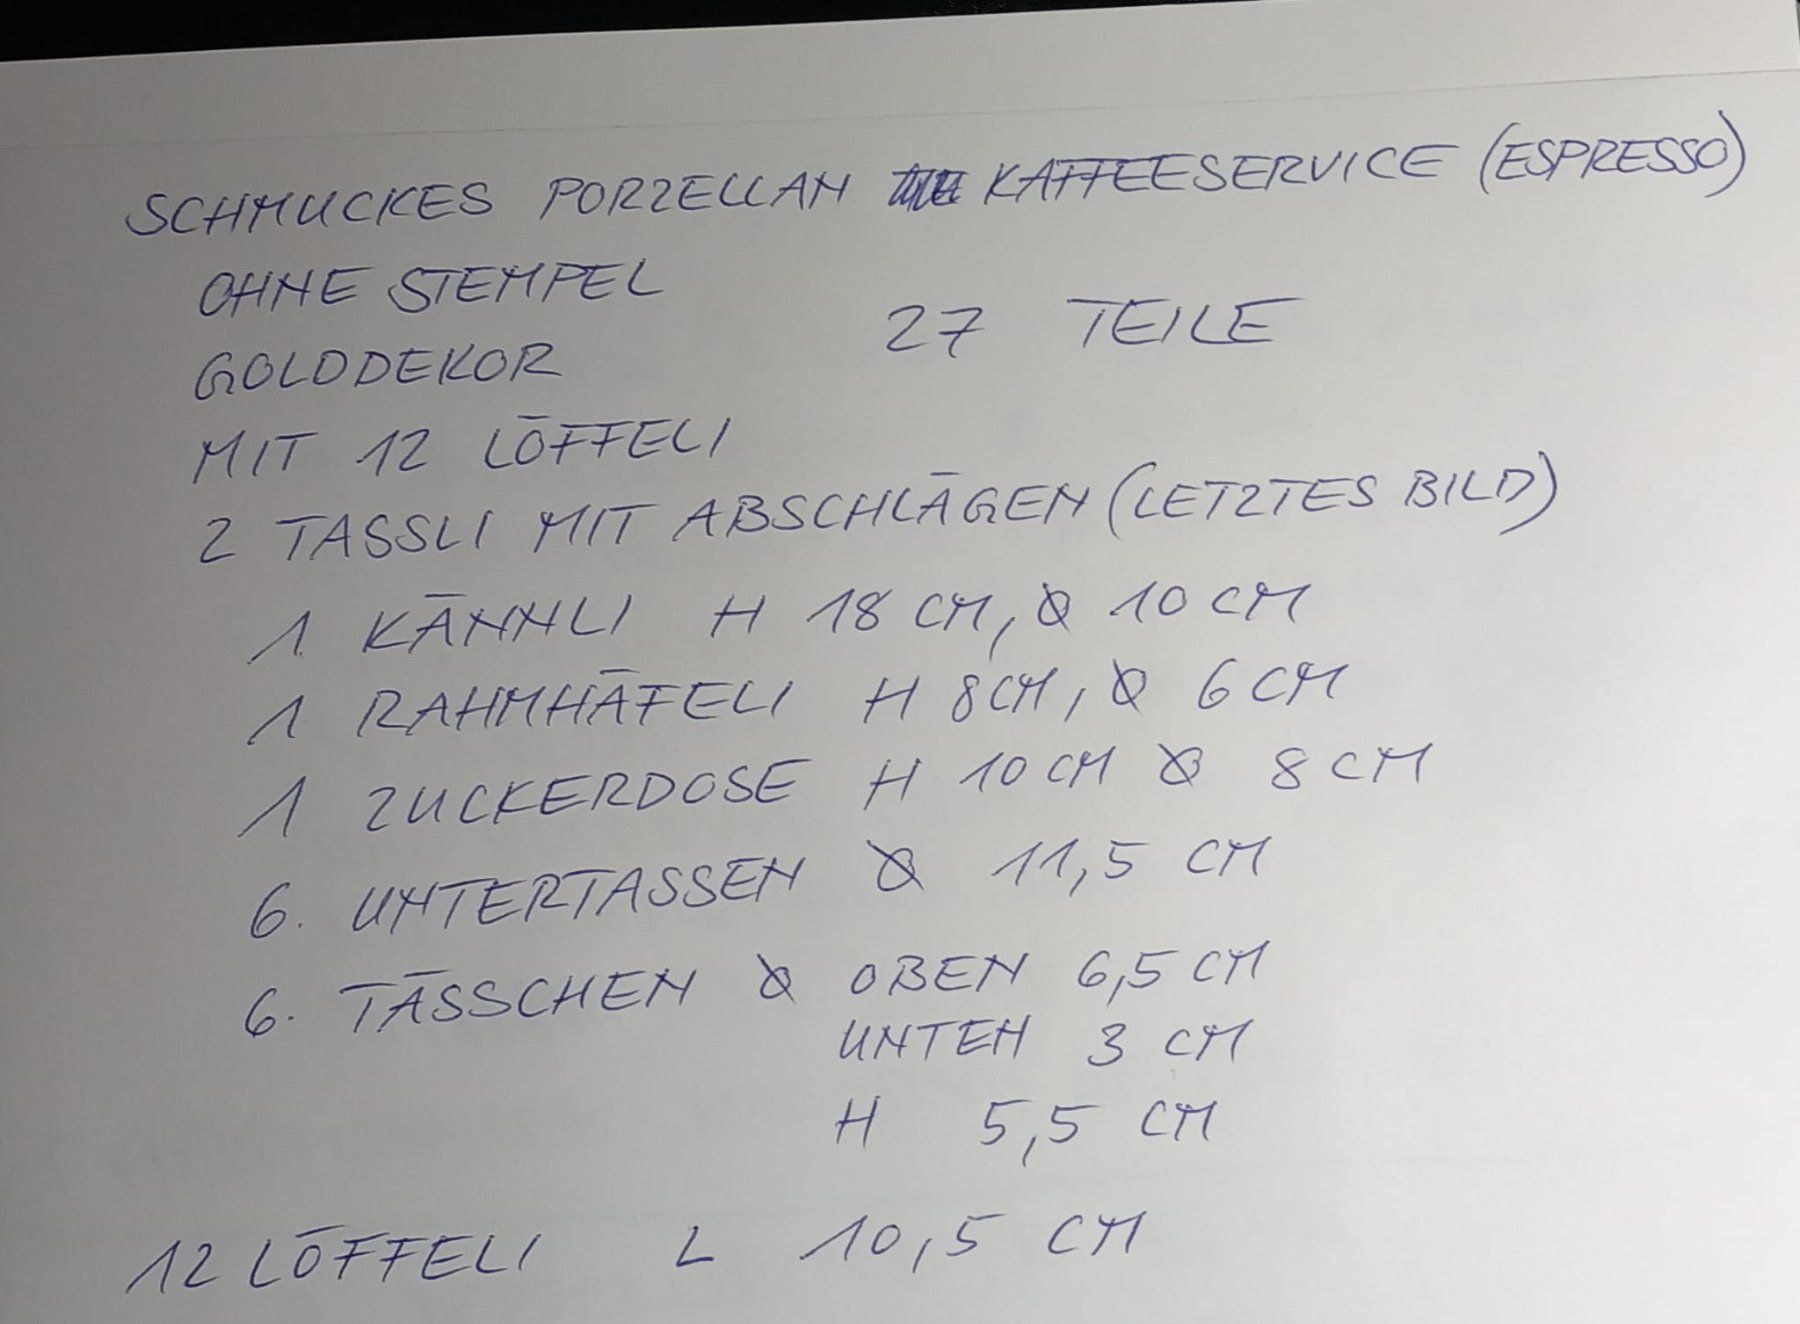 SCHMUCKES PORZELLAN KAFFEESERVICE (ESPRESSO)
OHNE STEMPEL
27 TEILE
GOLDDEKOR
MIT 12 LÖFFELI
2 TASSLI MIT ABSCHLÄGEN (LETZTES BILD)
1 KÄNNLI H 18 CM, Ø 10 CM
1 RAHMHÄFELI H 8 CM, Ø 6 CM
1 ZUCKERDOSE H 10 CM Ø 8 CM
6. UNTERTASSEN Ø 11,5 CM
6. TÄSSCHEN Ø OBEN 6,5 CM
UNTEN 3 CM
H 5,5 CM
12 LÖFFELI L 10,5 CM